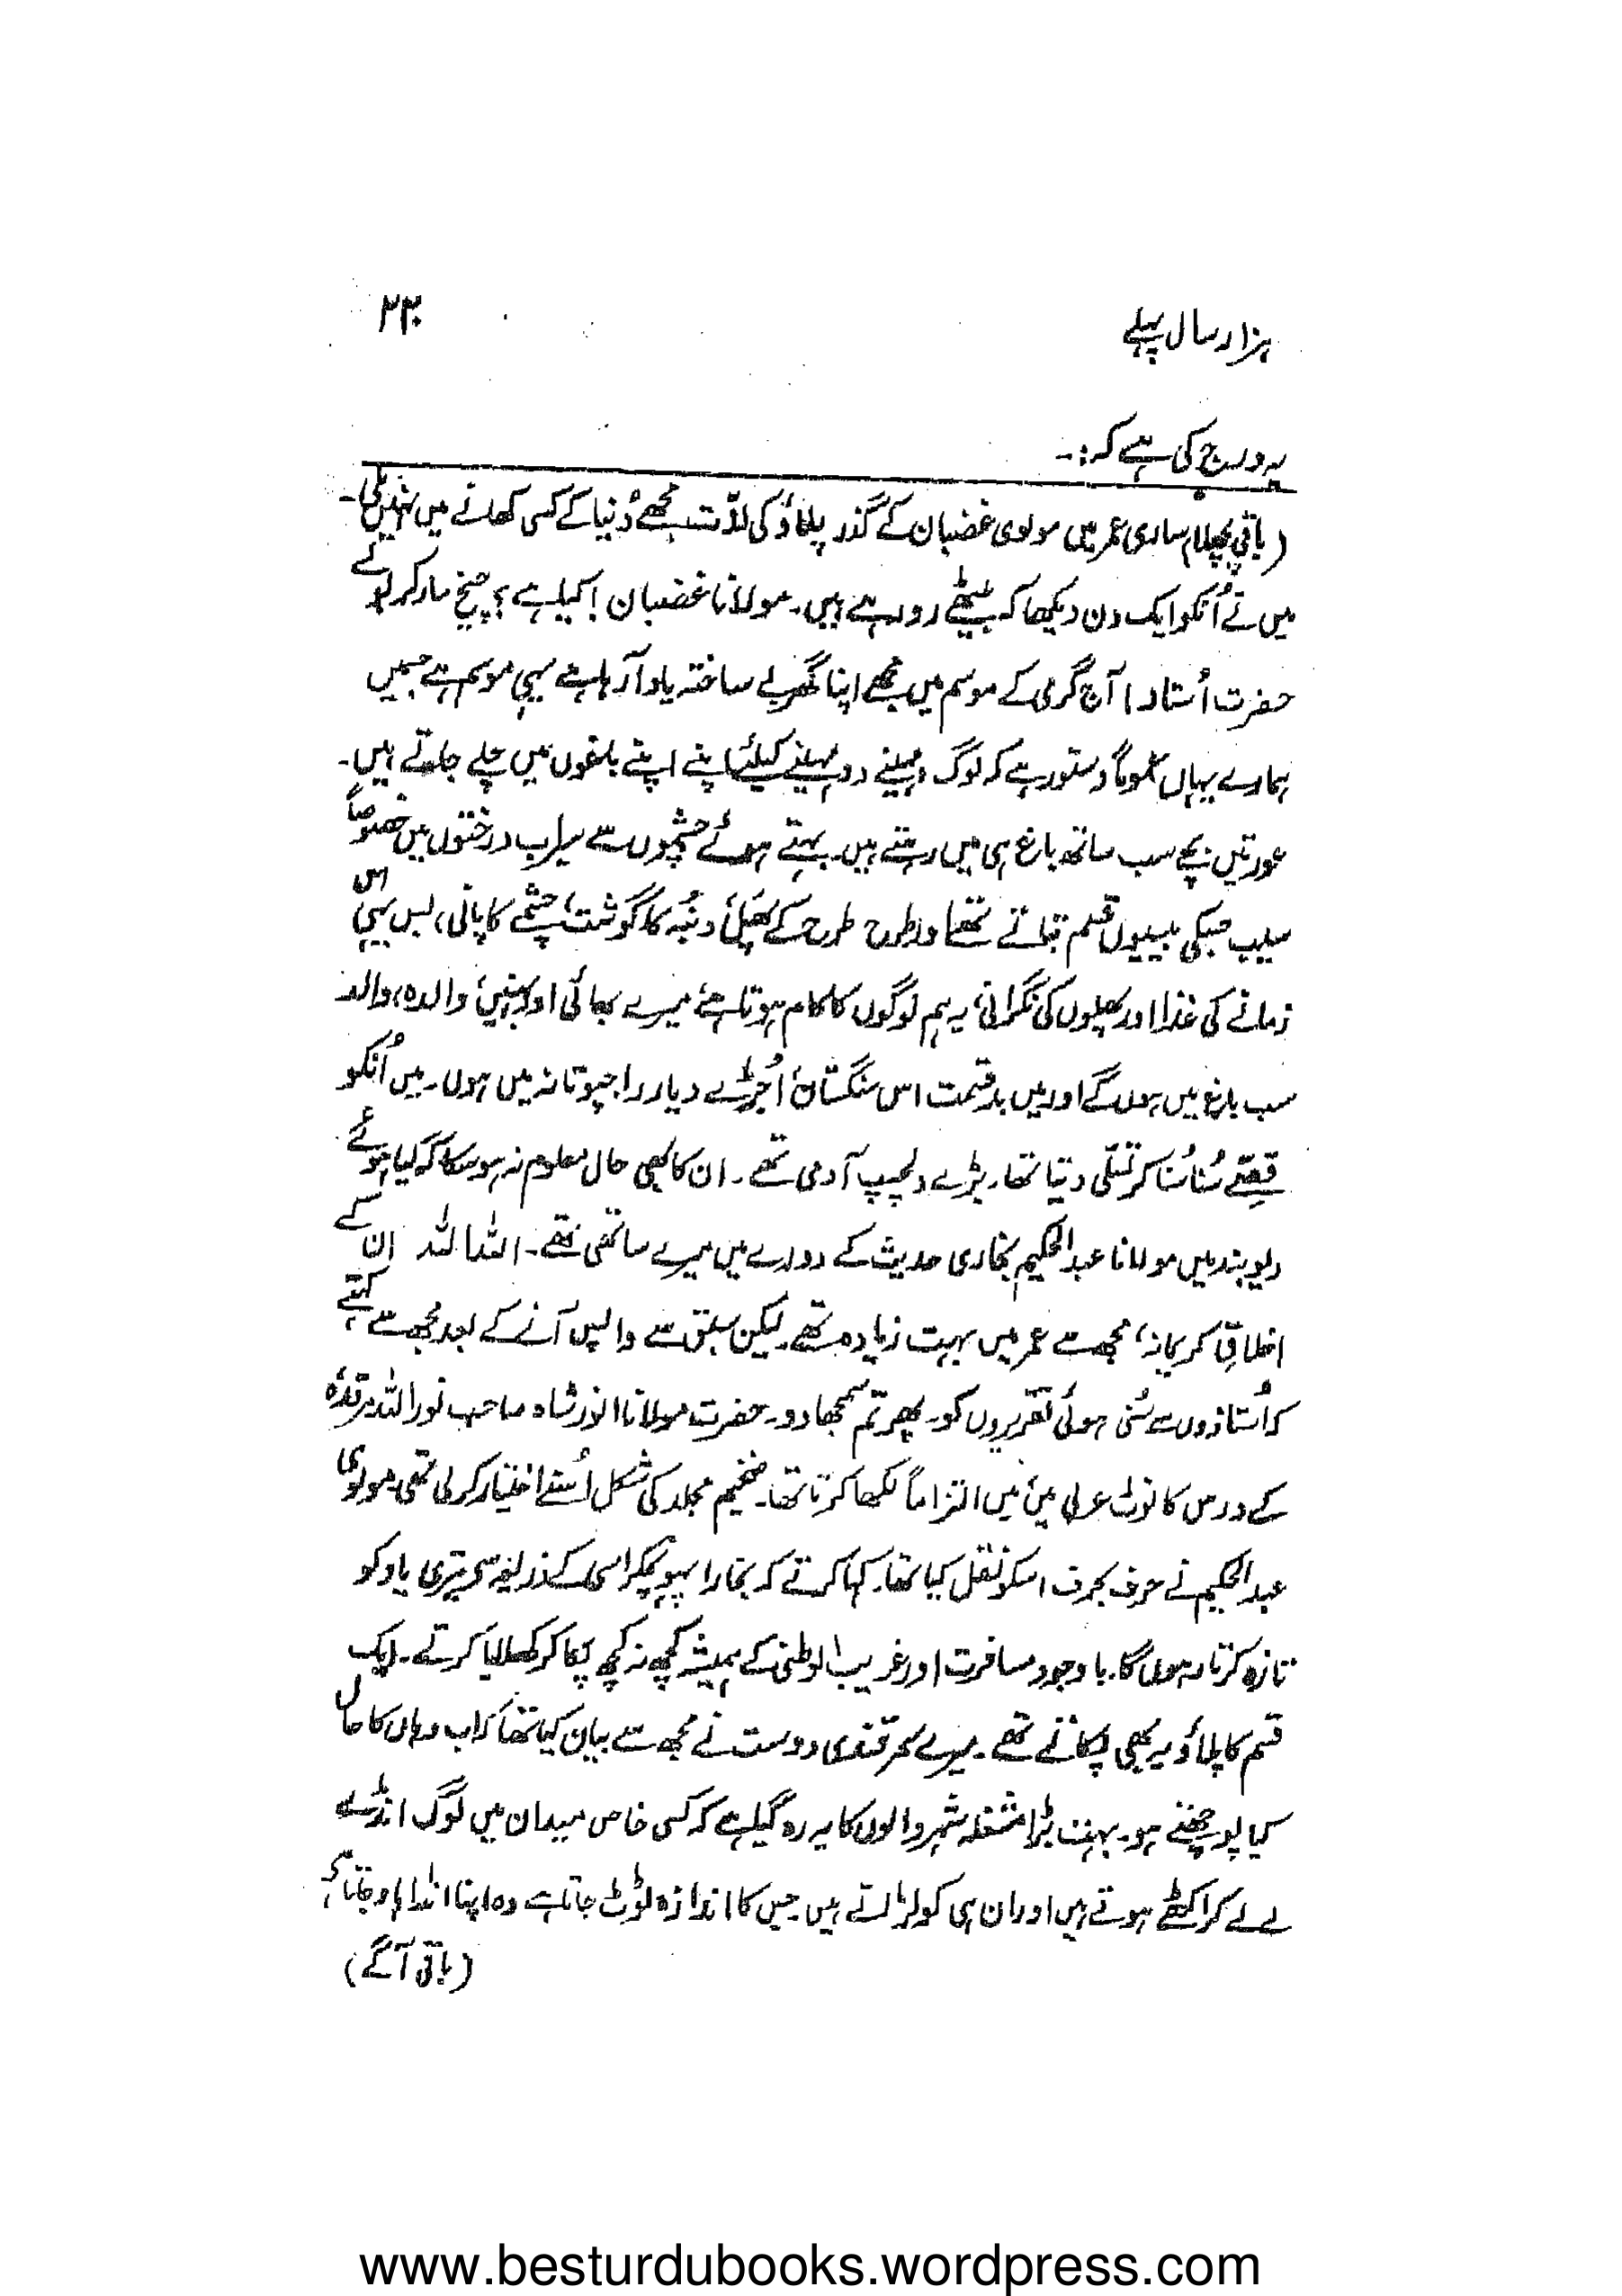 ہزار سال پہلے
۲۳۰
یہ درج کی ہے کہ :-
(باقی پچھلا) ساری عمر میں مولوی غضبان کے گذر پلاؤ کی لذت مجھے دُنیا کے کسی کھانے میں نہیں ملی۔
میں نے اُنکو ایک دن دیکھا کہ بیٹھے رو رہے ہیں۔ مولانا غضبان! کیا ہے؟ چیخ مار کر بولے
حضرت اُستاد! آج گرمی کے موسم میں مجھے اپنا گھر بے ساختہ یاد آرہا ہے یہی موسم ہے جسمیں
ہمارے یہاں عموماً دستور ہے کہ لوگ مہینے دو مہینے کیلئے اپنے اپنے باغوں میں چلے جاتے ہیں۔
عورتیں بچے سب ساتھ باغ ہی میں رہتے ہیں۔ بہتے ہوئے چشموں سے سیراب درختوں میں خصوصاً
سیب جسکی بیسیوں قسم بتاتے تھے اور طرح طرح کے پھل، دنبہ کا گوشت، چشمے کا پانی، بس یہی اس
زمانے کی غذا اور پھلوں کی نگرانی، یہ ہم لوگوں کا کام ہوتا ہے، میرے بھائی اور بہنیں، والدہ، والد
سب باغ میں ہوں گے اور میں بدقسمت اس سنگستان، اُجڑے دیار راجپوتانہ میں ہوں۔ میں اُنکو
قصّے سُنا سُنا کر تسلّی دیتا تھا۔ بڑے دلچسپ آدمی تھے۔ ان کا بھی حال معلوم نہ ہوسکا کہ کیا ہوئے
دیوبند میں مولانا عبدالحکیم بخاری حدیث کے دورے میں میرے ساتھی تھے۔ اللہ اللہ ان کے
اخلاقِ کریمانہ، مجھ سے عمر میں بہت زیادہ تھے۔ لیکن سبق سے واپس آنے کے بعد مجھ سے کہتے
کہ اُستاذوں سے سُنی ہوئی تقریروں کو۔ پھر تم سمجھا دو۔ حضرت مولانا انور شاہ صاحب نور اللہ مرقدہٗ
کے درس کا نوٹ عربی میں، میں التزاماً لکھا کرتا تھا۔ ضخیم مجلد کی شکل اُسنے اختیار کرلی تھی۔ مولوی
عبدالحکیم نے حرف بحرف اسکو نقل کیا تھا۔ کہا کرتے کہ بخارا پہونچکر اسی کے ذریعہ سے تیری یاد کو
تازہ کرتا رہوں گا۔ باوجود مسافرت اور غریب الوطنی کے ہمیشہ کچھ نہ کچھ پکا کر کھلایا کرتے۔ ایک
قسم کا پلاؤ یہ بھی پکاتے تھے۔ میرے سمرقندی دوست نے مجھ سے بیان کیا تھا کہ اب وہاں کا حال
کیا پوچھتے ہو۔ بہت بڑا مشغلہ شہر والوں کا یہ رہ گیا ہے کہ کسی خاص میدان میں لوگ انڈے
لے لے کر اکٹھے ہوتے ہیں اور ان ہی کو لڑاتے ہیں۔ جس کا اندازہ لوٹ جاتا ہے وہ اپنا انڈا
(باقی آگے)
www.besturdubooks.wordpress.com